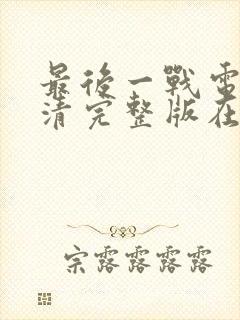 最後一戰電
清完整版在
宗露露露露